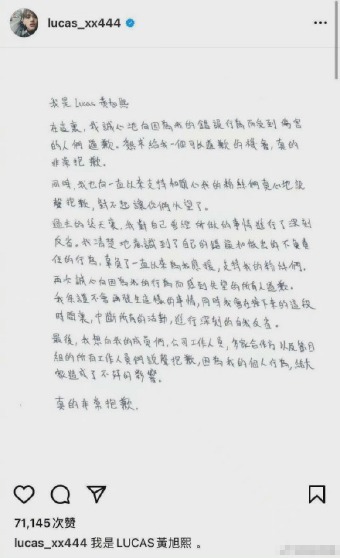 lucas_xx444
我是Lucas 黃旭熙
在這裏，我誠心地向因為我的錯誤行為而受到傷害
的人們道歉。想求給我一個可以道歉的機會，真的
非常抱歉。
同時，我也向一直以來支持和關心我的粉絲們真心地說
聲抱歉，對不起讓你們失望了。
過去的幾天裏，我對自己曾經所做的事情進行了深刻
反省。我清楚地意識到了自己的錯誤和做出的不負責
任的行為，辜負了一直以來為我應援，支持我的粉絲們。
再次誠心向因為我的行為而感到失望的所有人道歉。
我保證不會再發生這樣的事情，同時我會在接下來的這段
時間裏，中斷所有的活動，進行深刻的自我反省。
最後，我想向我的成員們，公司工作人員，各家合作方以及節目
組的所有工作人員們說聲抱歉，因為我的個人行為，給大
家造成了不好的影響。
真的非常抱歉。
71,145次赞
lucas_xx444 我是LUCAS黃旭熙。